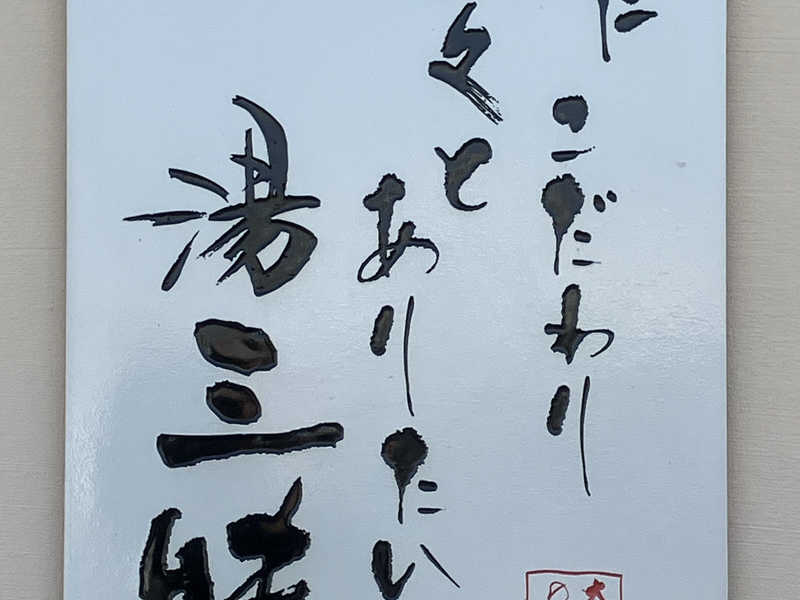 だ こだわり
々と ありたい
湯三昧